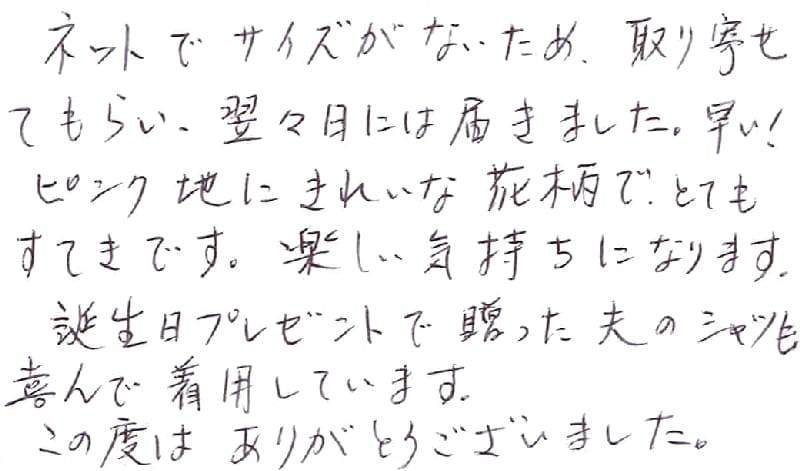 ネットでサイズがないため、取り寄せ
てもらい、翌々日には届きました。早い!
ピンク地にきれいな花柄で、とても
すてきです。楽しい気持ちになります。
誕生日プレゼントで贈った夫のシャツも
喜んで着用しています。
この度はありがとうございました。